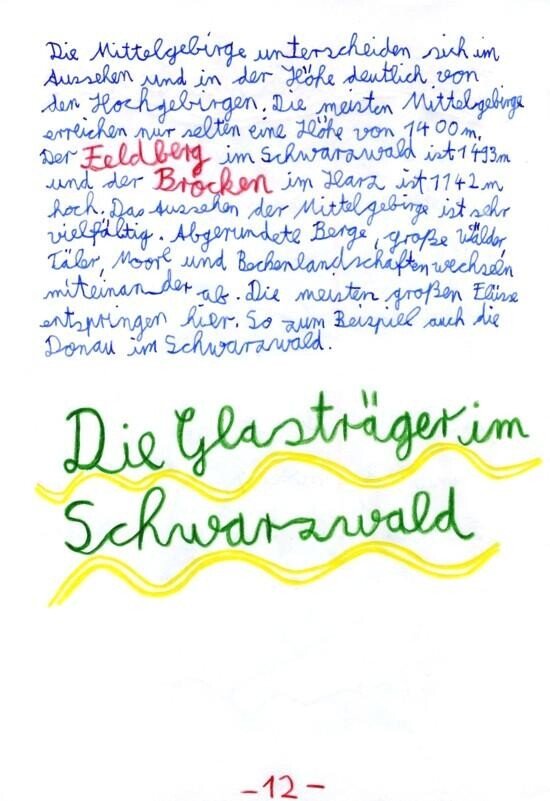 Die Mittelgebirge unterscheiden sich im
Aussehen und in der Höhe deutlich von
den Hochgebirgen. Die meisten Mittelgebirge
erreichen nur selten eine Höhe von 1400m.
Der Feldberg im Schwarzwald ist 1493m
und der Brocken im Harz ist 1142m
hoch. Das Aussehen der Mittelgebirge ist sehr
vielfältig. Abgerundete Berge, große Wälder,
Täler, Moore und Beckenlandschaften wechseln
miteinander ab. Die meisten großen Flüsse
entspringen hier. So zum Beispiel auch die
Donau im Schwarzwald.
Die Glasträger im
Schwarzwald
-12-